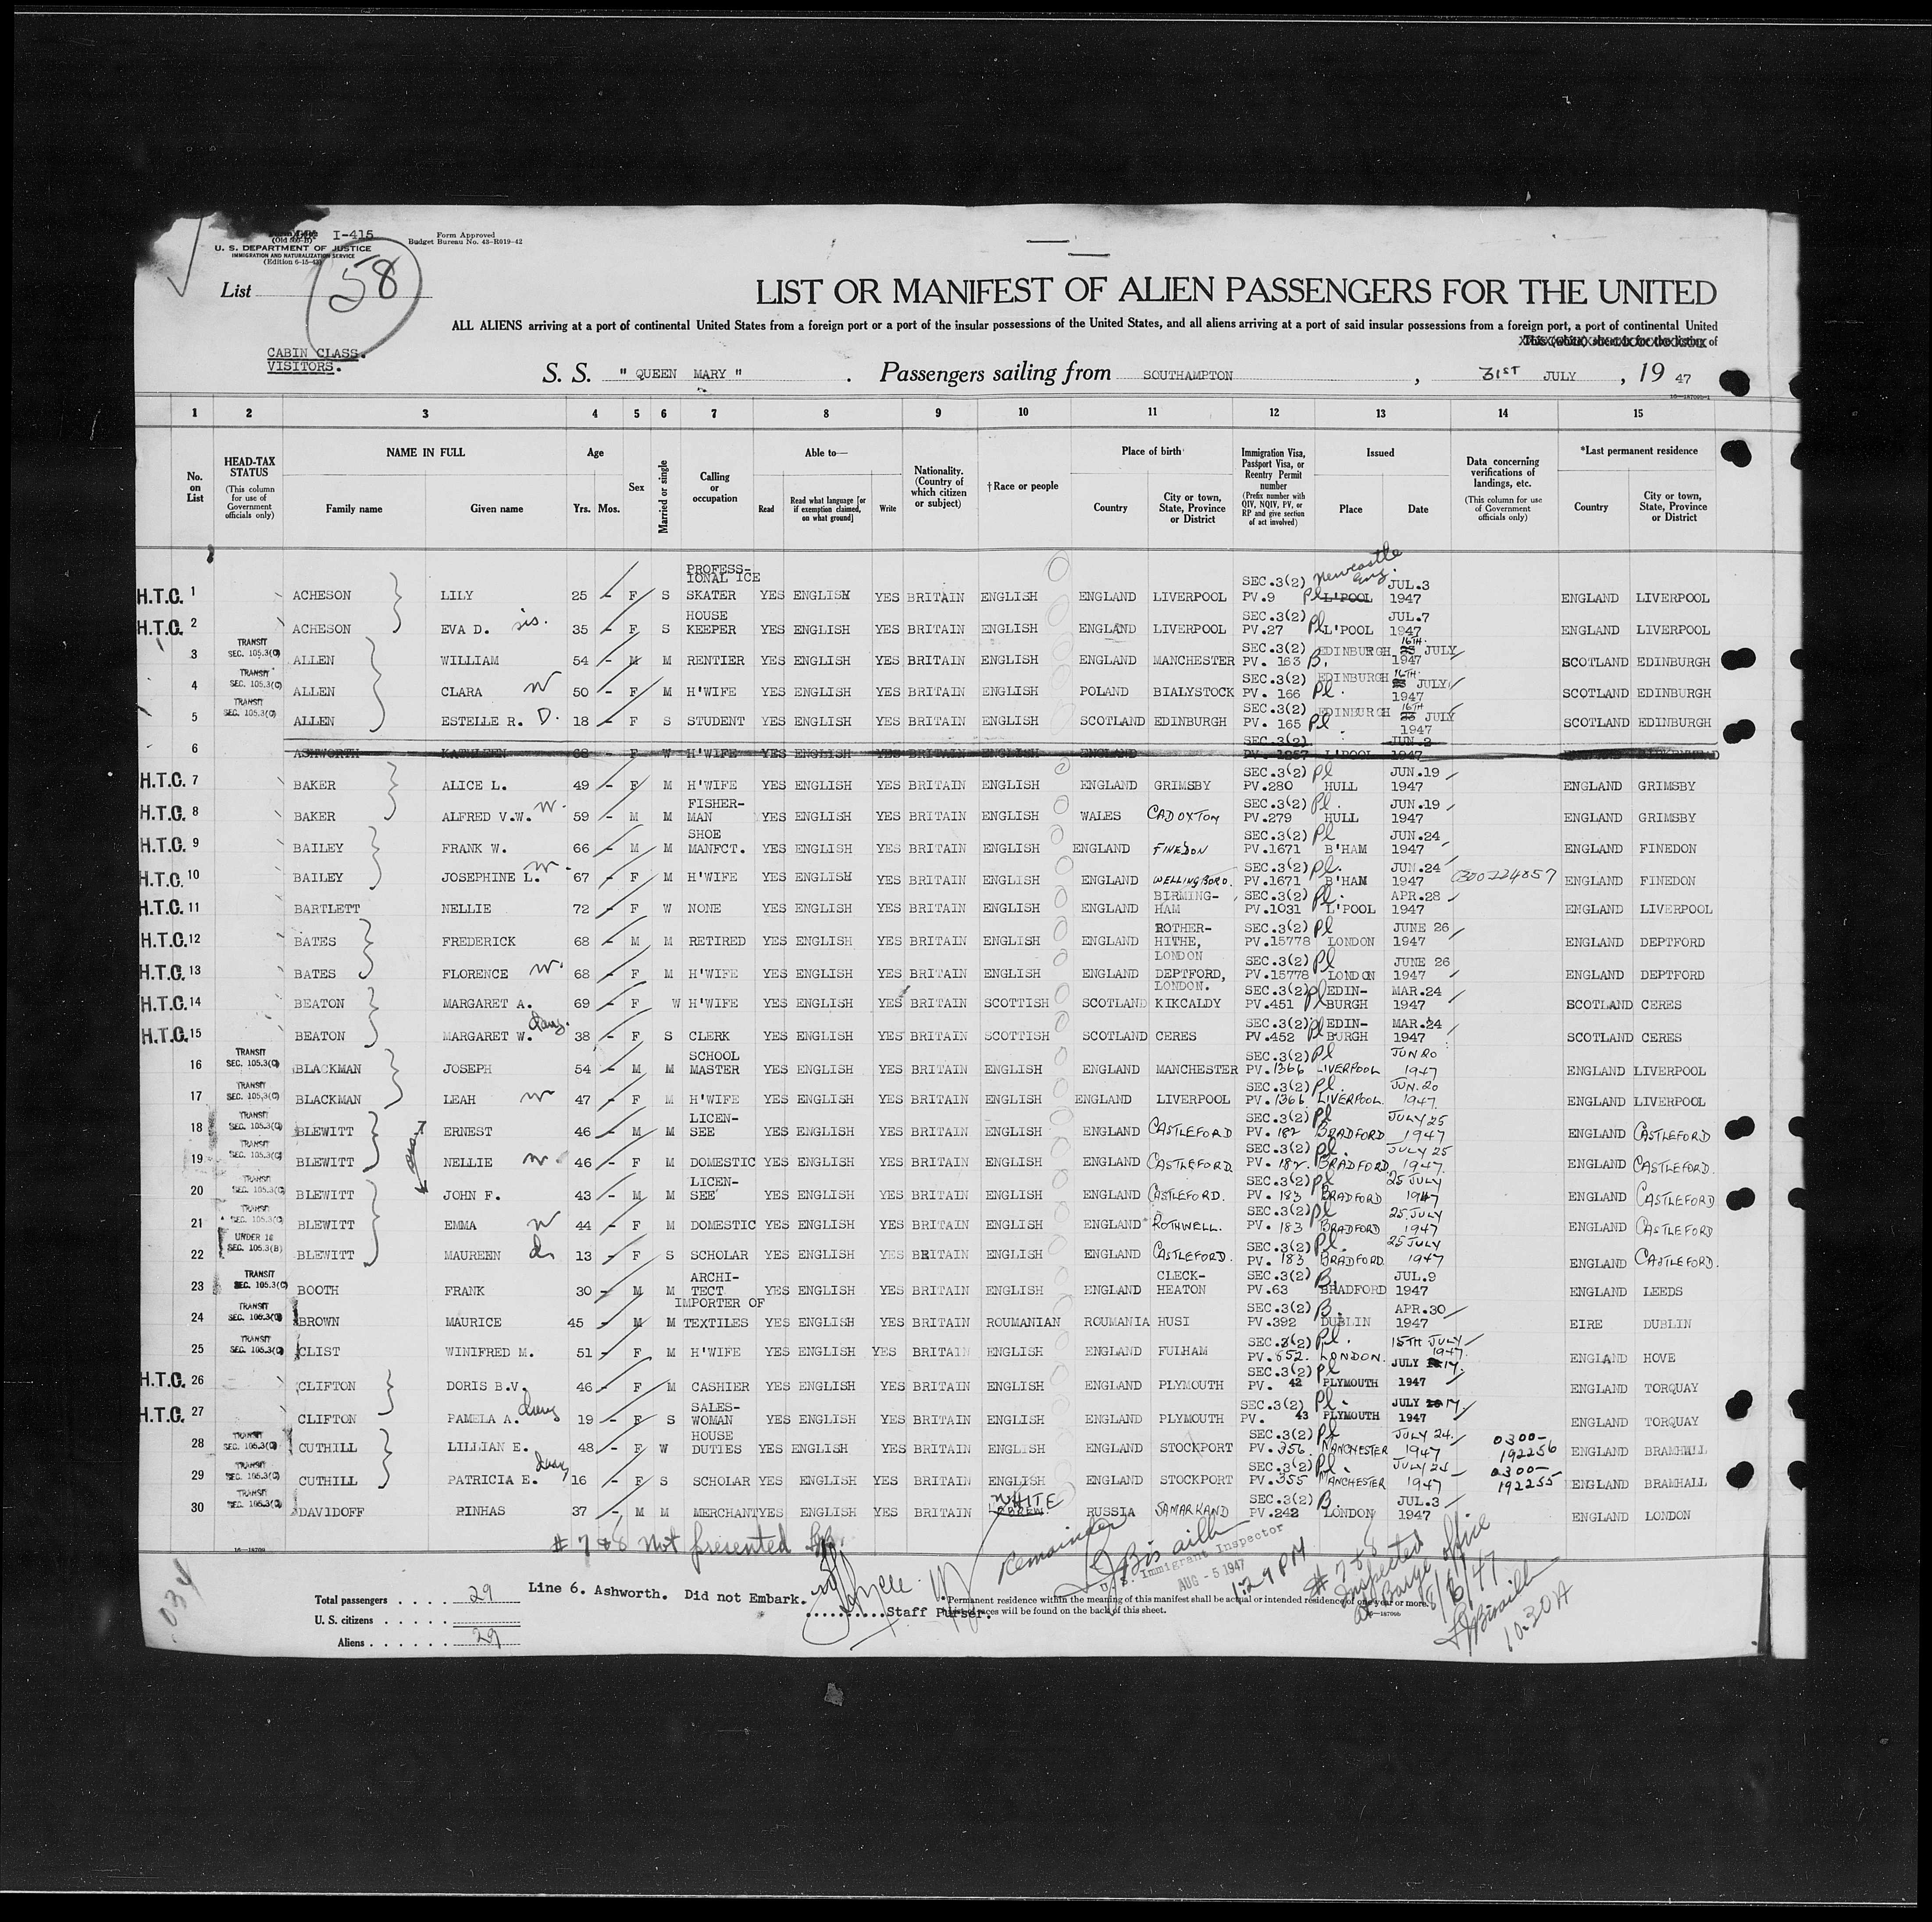 I-415
(Old 500-B)
U. S. DEPARTMENT OF JUSTICE
IMMIGRATION AND NATURALIZATION SERVICE
(Edition 6-15-43)
Form Approved
Budget Bureau No. 43-R019-42
List 58
LIST OR MANIFEST OF ALIEN PASSENGERS FOR THE UNITED
ALL ALIENS arriving at a port of continental United States from a foreign port or a port of the insular possessions of the United States, and all aliens arriving at a port of said insular possessions from a foreign port, a port of continental United
CABIN CLASS.
VISITORS.
S. S. " QUEEN MARY " . Passengers sailing from SOUTHAMPTON , 31ST JULY , 19 47
16—18709b-1
1 2 3 4 5 6 7 8 9 10 11 12 13 14 15
No. on List
HEAD-TAX STATUS (This column for use of Government officials only)
NAME IN FULL
Family name
Given name
Age
Yrs. Mos.
Sex
Married or single
Calling or occupation
Able to—
Read
Read what language [or if exemption claimed, on what ground]
Write
Nationality. (Country of which citizen or subject)
†Race or people
Place of birth
Country
City or town, State, Province or District
Immigration Visa, Passport Visa, or Reentry Permit number (Prefix number with QIV, NQIV, PV, or RP and give section of act involved)
Issued
Place
Date
Data concerning verifications of landings, etc. (This column for use of Government officials only)
*Last permanent residence
Country
City or town, State, Province or District
H.T.C. 1 ACHESON LILY 25 - F S PROFESS-IONAL ICE SKATER YES ENGLISH YES BRITAIN ENGLISH ENGLAND LIVERPOOL SEC.3(2) PV.9 Pl L'POOL Newcastle Eng. JUL.3 1947 ENGLAND LIVERPOOL
H.T.C. 2 ACHESON EVA D. sis. 35 - F S HOUSE KEEPER YES ENGLISH YES BRITAIN ENGLISH ENGLAND LIVERPOOL SEC.3(2) PV.27 Pl L'POOL JUL.7 1947 ENGLAND LIVERPOOL
3 TRANSIT SEC. 105.3(C) ALLEN WILLIAM 54 - M M RENTIER YES ENGLISH YES BRITAIN ENGLISH ENGLAND MANCHESTER SEC.3(2) PV. 163 B. EDINBURGH 16TH. JULY 1947 SCOTLAND EDINBURGH
4 TRANSIT SEC. 105.3(C) ALLEN CLARA W 50 - F M H'WIFE YES ENGLISH YES BRITAIN ENGLISH POLAND BIALYSTOCK SEC.3(2) PV. 166 Pl. EDINBURGH 16TH. JULY 1947 SCOTLAND EDINBURGH
5 TRANSIT SEC. 105.3(C) ALLEN ESTELLE R. D. 18 - F S STUDENT YES ENGLISH YES BRITAIN ENGLISH SCOTLAND EDINBURGH SEC.3(2) PV. 165 Pl EDINBURGH 16TH JULY 1947 SCOTLAND EDINBURGH
6 ASHWORTH KATHLEEN 68 - F W H'WIFE YES ENGLISH YES BRITAIN ENGLISH ENGLAND SEC.3(2) PV. 1257 L'POOL JUN.2 1947 ENGLAND BIRKENHEAD
H.T.C. 7 BAKER ALICE L. 49 - F M H'WIFE YES ENGLISH YES BRITAIN ENGLISH ENGLAND GRIMSBY SEC.3(2) PV.280 Pl HULL JUN.19 1947 ENGLAND GRIMSBY
H.T.C. 8 BAKER ALFRED V.W. W. 59 - M M FISHER-MAN YES ENGLISH YES BRITAIN ENGLISH WALES CADOXTON SEC.3(2) PV.279 Pl. HULL JUN.19 1947 ENGLAND GRIMSBY
H.T.C. 9 BAILEY FRANK W. 66 - M M SHOE MANFCT. YES ENGLISH YES BRITAIN ENGLISH ENGLAND FINEDON SEC.3(2) PV.1671 Pl B'HAM JUN.24 1947 ENGLAND FINEDON
H.T.C. 10 BAILEY JOSEPHINE L. W. 67 - F M H'WIFE YES ENGLISH YES BRITAIN ENGLISH ENGLAND WELLINGBORO. SEC.3(2) PV.1671 Pl. B'HAM JUN.24 1947 0300224857 ENGLAND FINEDON
H.T.C. 11 BARTLETT NELLIE 72 - F W NONE YES ENGLISH YES BRITAIN ENGLISH ENGLAND BIRMING-HAM SEC.3(2) PV.1031 Pl. L'POOL APR.28 1947 ENGLAND LIVERPOOL
H.T.C. 12 BATES FREDERICK 68 - M M RETIRED YES ENGLISH YES BRITAIN ENGLISH ENGLAND ROTHER-HITHE, LONDON SEC.3(2) PV.15778 Pl LONDON JUNE 26 1947 ENGLAND DEPTFORD
H.T.C. 13 BATES FLORENCE W. 68 - F M H'WIFE YES ENGLISH YES BRITAIN ENGLISH ENGLAND DEPTFORD, LONDON. SEC.3(2) PV.15778 Pl LONDON JUNE 26 1947 ENGLAND DEPTFORD
H.T.C. 14 BEATON MARGARET A. 69 - F W H'WIFE YES ENGLISH YES BRITAIN SCOTTISH SCOTLAND KIKCALDY SEC.3(2) PV.451 Pl EDIN-BURGH MAR.24 1947 SCOTLAND CERES
H.T.C. 15 BEATON MARGARET W. daug. 38 - F S CLERK YES ENGLISH YES BRITAIN SCOTTISH SCOTLAND CERES SEC.3(2) PV.452 Pl EDIN-BURGH MAR.24 1947 SCOTLAND CERES
16 TRANSIT SEC. 105.3(C) BLACKMAN JOSEPH 54 - M M SCHOOL MASTER YES ENGLISH YES BRITAIN ENGLISH ENGLAND MANCHESTER SEC.3(2) PV.1366 Pl LIVERPOOL JUN 20 1947 ENGLAND LIVERPOOL
17 TRANSIT SEC. 105.3(C) BLACKMAN LEAH W 47 - F M H'WIFE YES ENGLISH YES BRITAIN ENGLISH ENGLAND LIVERPOOL SEC.3(2) PV.1366 Pl. LIVERPOOL. JUN.20 1947. ENGLAND LIVERPOOL
18 TRANSIT SEC. 105.3(C) BLEWITT ERNEST 46 - M M LICEN-SEE YES ENGLISH YES BRITAIN ENGLISH ENGLAND CASTLEFORD SEC.3(2) PV. 182 Pl BRADFORD JULY 25 1947 ENGLAND CASTLEFORD
19 TRANSIT SEC. 105.3(C) BLEWITT NELLIE W. 46 - F M DOMESTIC YES ENGLISH YES BRITAIN ENGLISH ENGLAND CASTLEFORD SEC.3(2) PV. 182. Pl. BRADFORD JULY 25 1947. ENGLAND CASTLEFORD.
20 TRANSIT SEC. 105.3(C) BLEWITT JOHN F. 43 - M M LICEN-SEE YES ENGLISH YES BRITAIN ENGLISH ENGLAND CASTLEFORD. SEC.3(2) PV. 183 Pl BRADFORD 25 JULY 1947 ENGLAND CASTLEFORD
21 TRANSIT SEC. 105.3(C) BLEWITT EMMA W 44 - F M DOMESTIC YES ENGLISH YES BRITAIN ENGLISH ENGLAND ROTHWELL. SEC.3(2) PV. 183 Pl BRADFORD 25 JULY 1947 ENGLAND CASTLEFORD
22 UNDER 16 SEC. 105.3(B) BLEWITT MAUREEN d. 13 - F S SCHOLAR YES ENGLISH YES BRITAIN ENGLISH ENGLAND CASTLEFORD. SEC.3(2) PV. 183 Pl. BRADFORD. 25 JULY 1947 ENGLAND CASTLEFORD.
23 TRANSIT SEC. 105.3(C) BOOTH FRANK 30 - M M ARCHI-TECT YES ENGLISH YES BRITAIN ENGLISH ENGLAND CLECK-HEATON SEC.3(2) PV.63 B. BRADFORD JUL.9 1947 ENGLAND LEEDS
24 TRANSIT SEC. 105.3(C) BROWN MAURICE 45 - M M IMPORTER OF TEXTILES YES ENGLISH YES BRITAIN ROUMANIAN ROUMANIA HUSI SEC.3(2) PV.392 B. DUBLIN APR.30 1947 EIRE DUBLIN
25 TRANSIT SEC. 105.3(C) CLIST WINIFRED M. 51 - F M H'WIFE YES ENGLISH YES BRITAIN ENGLISH ENGLAND FULHAM SEC.3(2) PV.652. Pl. LONDON. 15TH JULY 1947. ENGLAND HOVE
H.T.C. 26 CLIFTON DORIS B.V. 46 - F M CASHIER YES ENGLISH YES BRITAIN ENGLISH ENGLAND PLYMOUTH SEC.3(2) PV. 42 Pl PLYMOUTH JULY 17. 1947 ENGLAND TORQUAY
H.T.C. 27 CLIFTON PAMELA A. daug 19 - F S SALES-WOMAN YES ENGLISH YES BRITAIN ENGLISH ENGLAND PLYMOUTH SEC.3(2) PV. 43 Pl. PLYMOUTH JULY 17. 1947 ENGLAND TORQUAY
28 TRANSIT SEC. 105.3(C) CUTHILL LILLIAN E. 48 - F W HOUSE DUTIES YES ENGLISH YES BRITAIN ENGLISH ENGLAND STOCKPORT SEC.3(2) PV.356 Pl MANCHESTER JULY 24. 1947 0300-192256 ENGLAND BRAMHALL
29 TRANSIT SEC. 105.3(C) CUTHILL PATRICIA E. daug 16 - F S SCHOLAR YES ENGLISH YES BRITAIN ENGLISH ENGLAND STOCKPORT SEC.3(2) PV.355 Pl. MANCHESTER JULY 24 1947 0300-192255 ENGLAND BRAMHALL
30 TRANSIT SEC. 105.3(C) DAVIDOFF PINHAS 37 - M M MERCHANT YES ENGLISH YES BRITAIN WHITE HEBREW RUSSIA SAMARKAND SEC.3(2) PV.242 B. LONDON JUL.3 1947 ENGLAND LONDON
# 7 & 8 Not presented
16-18709
Remainder
U. S. Immigrant Inspector
AUG - 5 1947
1:29 PM
# 7 & 8
Inspected
at Barge Office
8/6/47
10:30 A
034
Total passengers . . . . 29
U. S. citizens . . . . . .
Aliens . . . . . . 29
Line 6. Ashworth. Did not Embark.
...........Staff Purser.
*Permanent residence within the meaning of this manifest shall be actual or intended residence of one year or more.
races will be found on the back of this sheet.
16—18709b